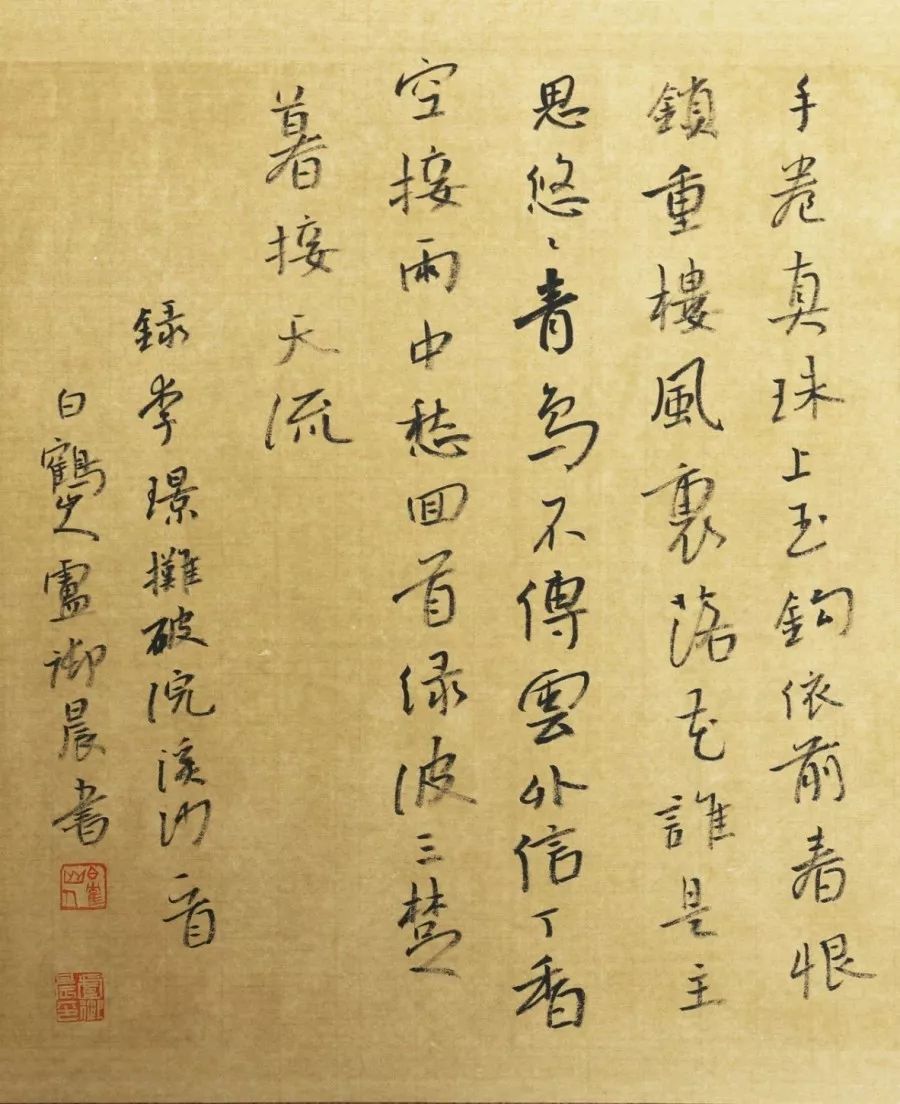 手卷真珠上玉鈎依前春恨
鎖重樓風裏落花誰是主
思悠〻青鳥不傳雲外信丁香
空接雨中愁回首緑波三楚
暮接天流
録李璟攤破浣溪沙一首
白鶴山人盧御晨書
白崔山人